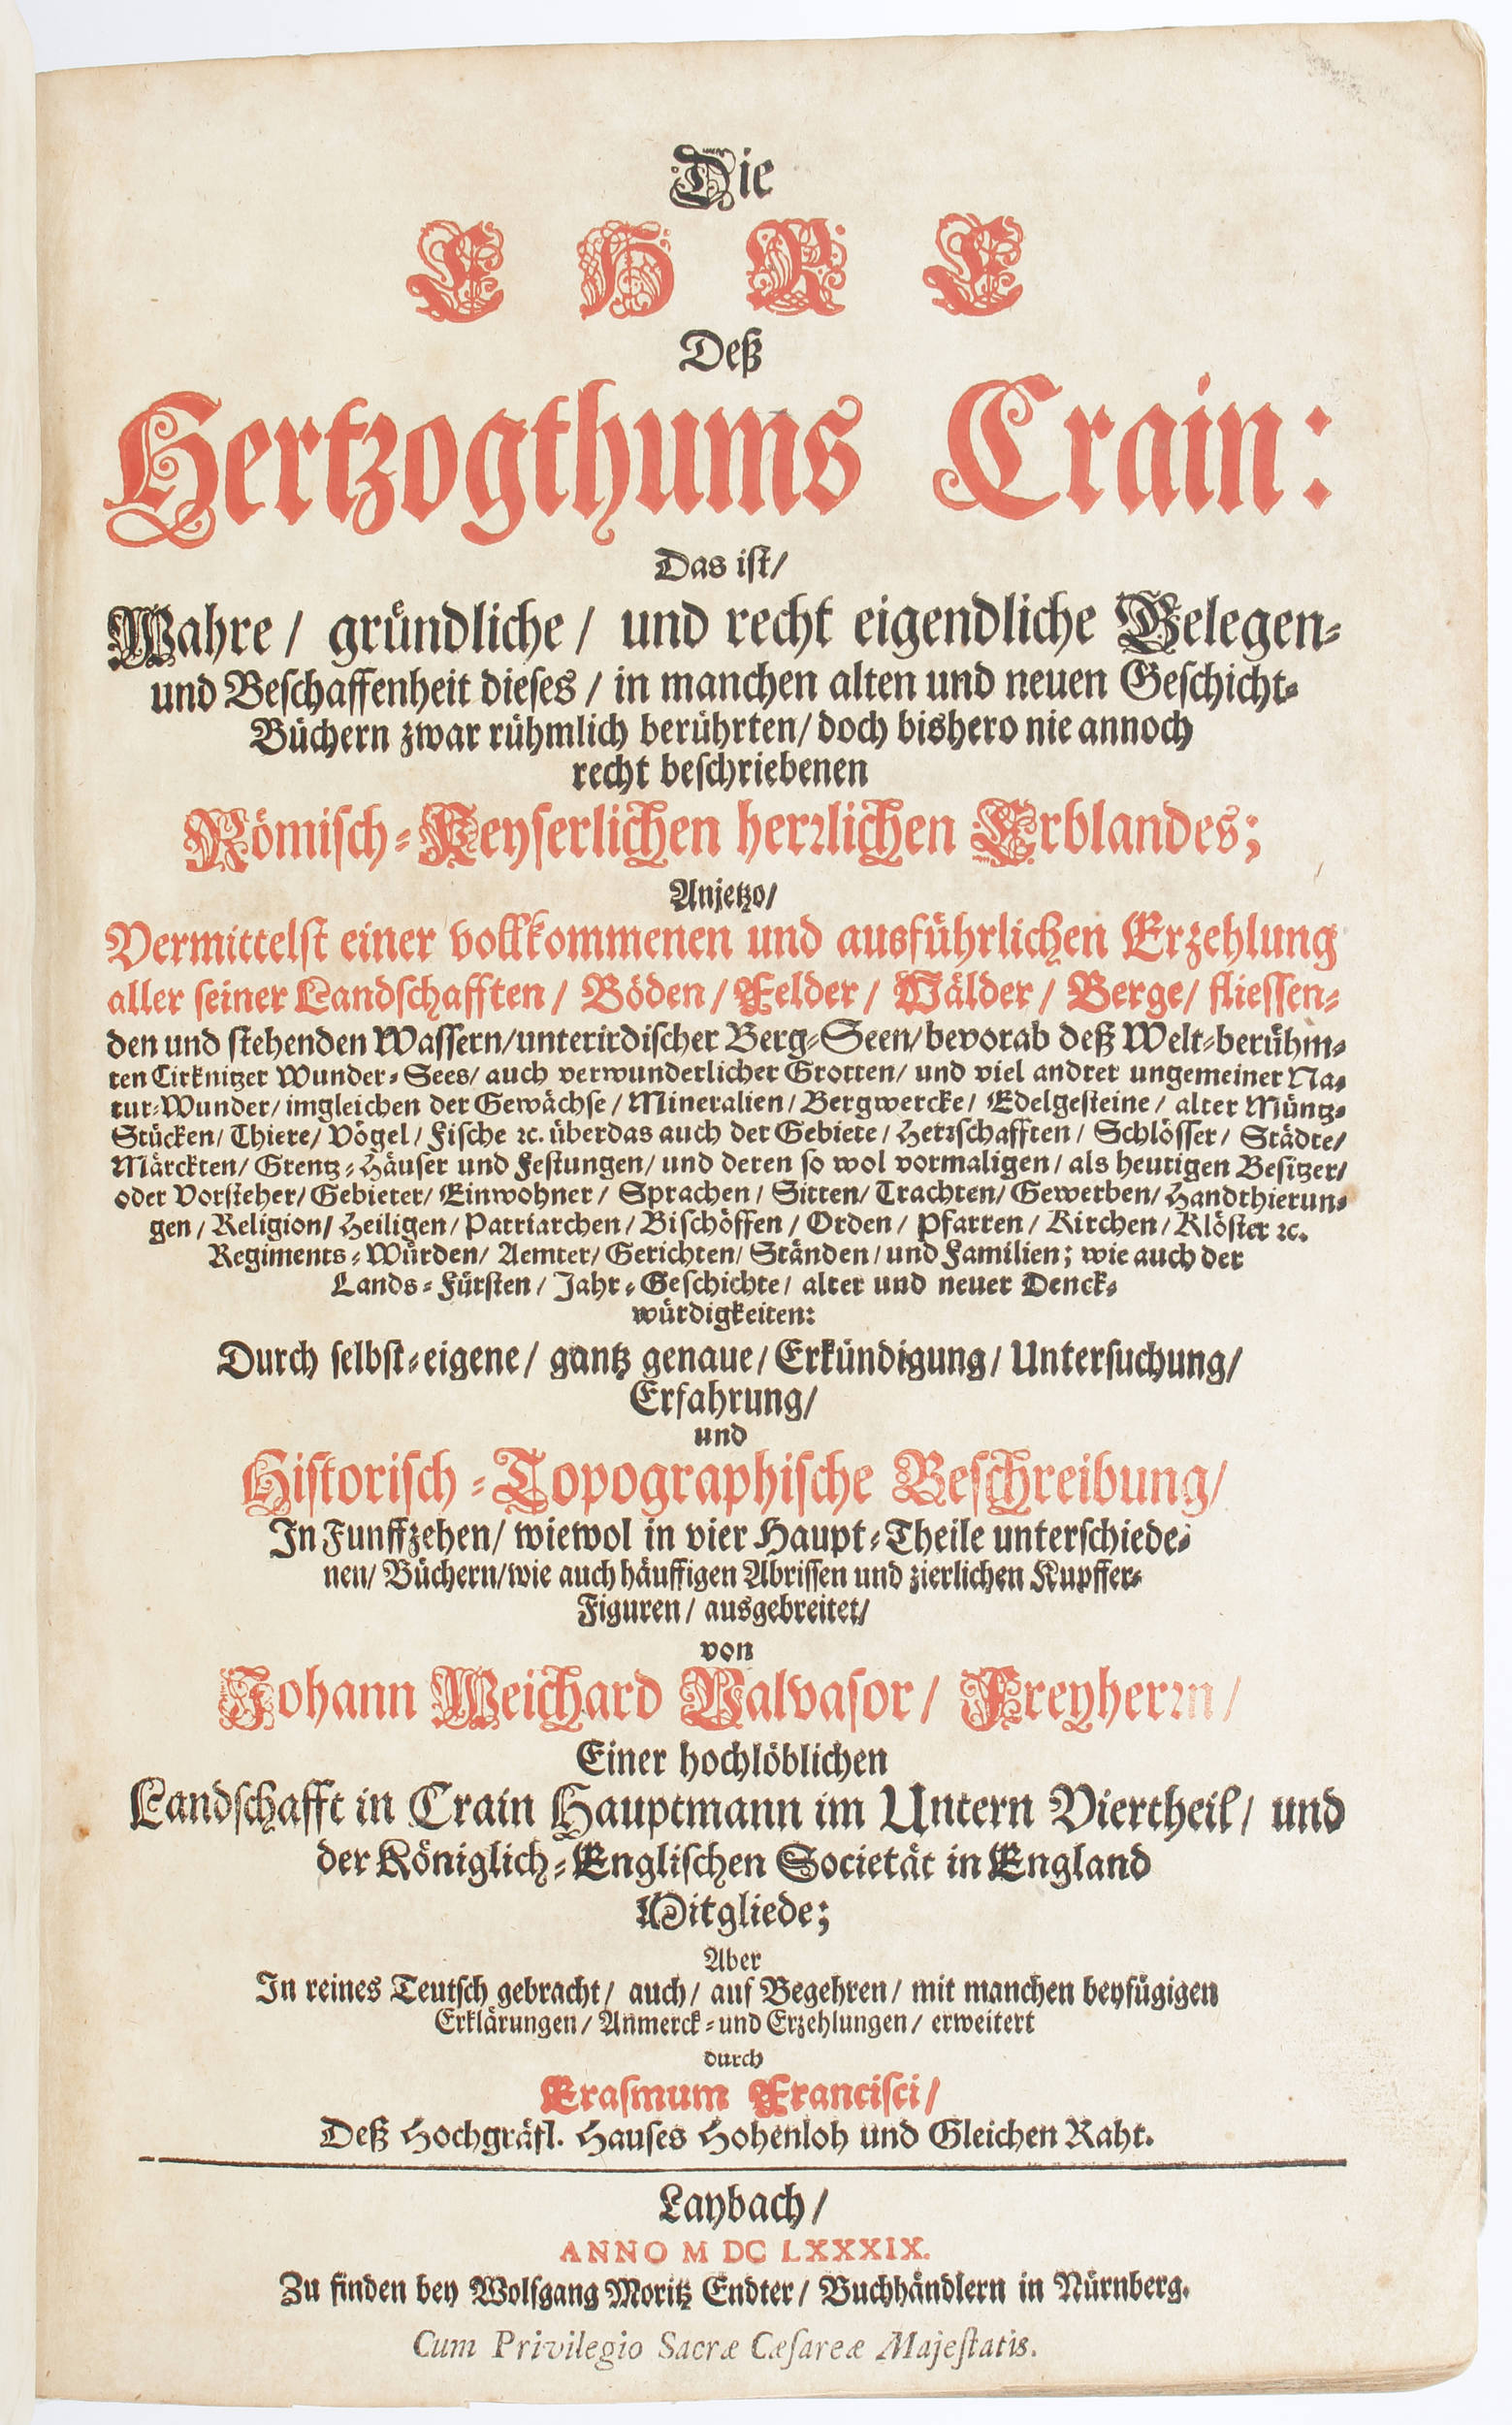 Die
EHRE
Deß
Hertzogthums Crain:
Das ist/
Wahre/ gründliche/ und recht eigendliche Belegen-
und Beschaffenheit dieses/ in manchen alten und neuen Geschicht-
Büchern zwar rühmlich berührten/ doch bishero nie annoch
recht beschriebenen
Römisch-Keyserlichen herrlichen Erblandes;
Anjetzo/
Vermittelst einer vollkommenen und ausführlichen Erzehlung
aller seiner Landschafften/ Böden/ Felder/ Wälder/ Berge/ fliessen-
den und stehenden Wassern/unterirdischer Berg-Seen/bevorab deß Welt-berühm-
ten Cirknitzer Wunder-Sees/ auch verwunderlicher Grotten/ und viel andrer ungemeiner Na-
tur-Wunder/ imgleichen der Gewächse/ Mineralien/ Bergwercke/ Edelgesteine/ alter Müntz-
Stücken/ Thiere/ Vögel/ Fische ꝛc. überdas auch der Gebiete/ Herrschafften/ Schlösser/ Städte/
Märckten/ Grentz-Häuser und Festungen/ und deren so wol vormaligen/ als heutigen Besitzer/
oder Vorsteher/ Gebieter/ Einwohner/ Sprachen/ Sitten/ Trachten/ Gewerben/ Handthierun-
gen/ Religion/ Heiligen/ Patriarchen/ Bischöffen/ Orden/ Pfarren/ Kirchen/ Klöster ꝛc.
Regiments-Würden/ Aemter/ Gerichten/ Ständen/ und Familien; wie auch der
Lands-Fürsten/ Jahr-Geschichte/ alter und neuer Denck-
würdigkeiten:
Durch selbst-eigene/ gantz genaue/ Erkündigung/ Untersuchung/
Erfahrung/
und
Historisch-Topographische Beschreibung/
In Funffzehen/ wiewol in vier Haupt-Theile unterschiede-
nen/ Büchern/wie auch häuffigen Abrissen und zierlichen Kupffer-
Figuren/ ausgebreitet/
von
Johann Weichard Valvasor/ Freyherrn/
Einer hochlöblichen
Landschafft in Crain Hauptmann im Untern Viertheil/ und
der Königlich-Englischen Societät in England
Mitgliede;
Aber
In reines Teutsch gebracht/ auch/ auf Begehren/ mit manchen beyfügigen
Erklärungen/ Anmerck-und Erzehlungen/ erweitert
durch
Erasmum Francisci/
Deß Hochgräfl. Hauses Hohenloh und Gleichen Raht.
Laybach/
ANNO M DC LXXXIX.
Zu finden bey Wolfgang Moritz Endter/ Buchhändlern in Nürnberg.
Cum Privilegio Sacræ Cæsareæ Majestatis.